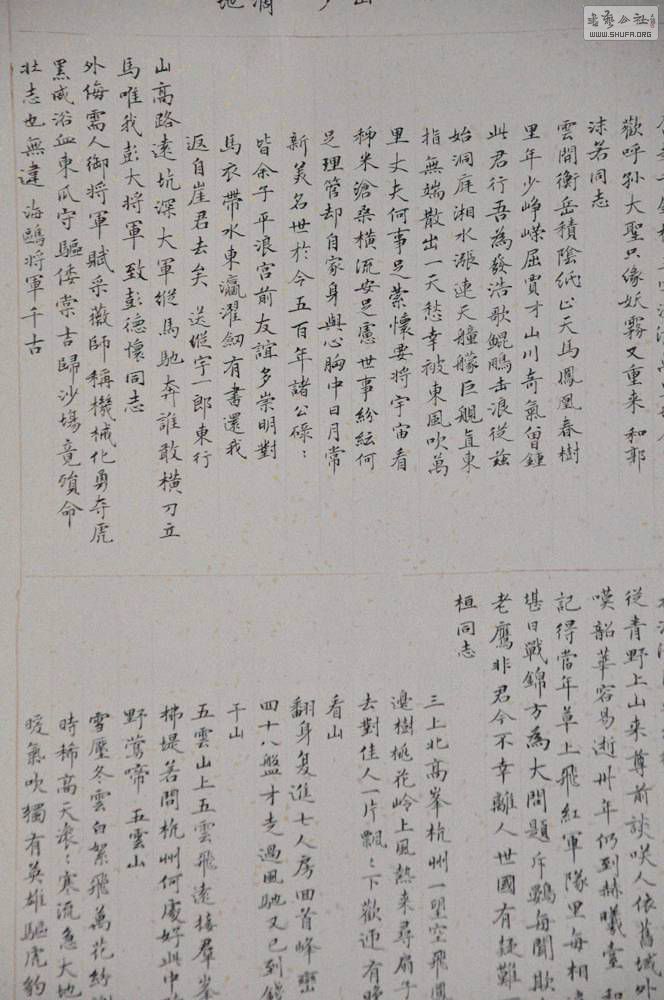 歡呼孫大聖只緣妖霧又重來 和郭
沫若同志
雲開衡岳積陰止天馬鳳凰春樹
里年少崢嶸屈賈才山川奇氣曾鍾
此君行吾為發浩歌鯤鵬击浪從茲
始洞庭湘水漲連天艟艨巨艦直東
指無端散出一天愁幸被東風吹萬
里丈夫何事足縈懷要將宇宙看
稊米滄桑橫流安足慮世事紛紜何
足理管却自家身與心胸中日月常
新美名世於今五百年諸公碌：
皆余子平浪宮前友誼多崇明對
馬衣帶水東瀛濯劍有書還我
返自崖君去矣 送縱宇一郎東行
山高路遠坑深大軍縱馬馳奔誰敢橫刀立
馬唯我彭大將軍 致彭德懷同志
外侮需人御將軍賦采薇師稱機械化勇奪虎
羆威浴血東瓜守驅倭棠吉歸沙場竟殞命
壯志也無違 海鷗將軍千古
從青野上山來尊前談笑人依舊域外
嘆韶華容易逝卅年仍到赫曦臺 和
記得當年草上飛紅軍隊里每相
堪日戰錦方為大問題斥鷃每聞欺
老鷹非君今不幸離人世國有疑難
桓同志
三上北高峯杭州一望空飛鳳
邊樹桃花岭上風熱來尋扇子
去對佳人一片飄：下歡迎有晚
看山
翻身复進七人房回首峰巒
四十八盤才走過風馳又已到錢
干山
五雲山上五雲飛遠接群峯
拂堤若問杭州何處好此中
野鶯啼 五雲山
雪壓冬雲白絮飛萬花紛謝
時稀高天滾：寒流急大地
暖氣吹獨有英雄驅虎豹
書藝公社
WWW.SHUFA.ORG